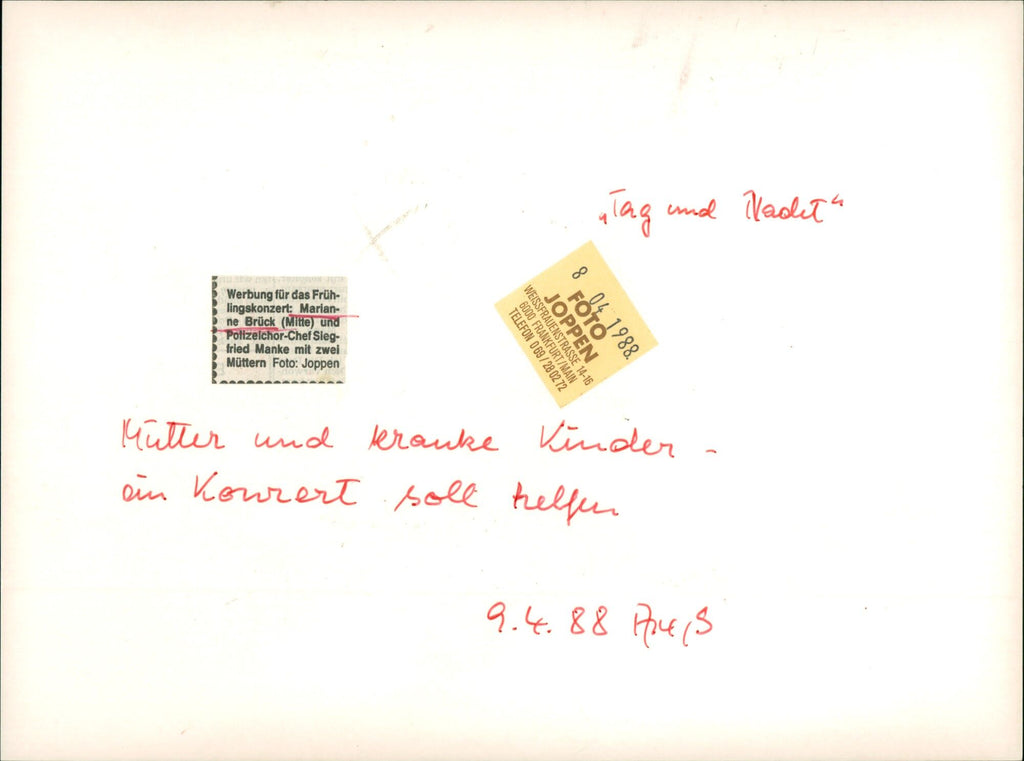 „Tag und Nacht“
Werbung für das Früh-
lingskonzert: Marian-
ne Brück (Mitte) und
Polizeichor-Chef Sieg-
fried Manke mit zwei
Müttern Foto: Joppen
8 04 1988
FOTO
JOPPEN
WEISSFRAUENSTRASSE 14-16
6000 FRANKFURT/MAIN
TELEFON 069/280272
Mütter und kranke Kinder -
ein Konzert soll helfen
9.4.88